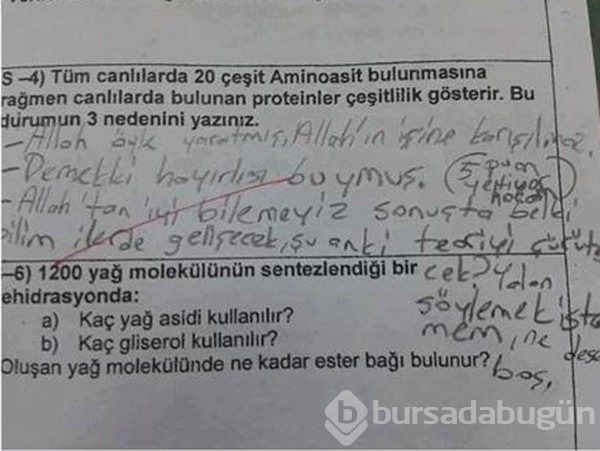 S –4) Tüm canlılarda 20 çeşit Aminoasit bulunmasına
rağmen canlılarda bulunan proteinler çeşitlilik gösterir. Bu
durumun 3 nedenini yazınız.
– Allah öyle yaratmış, Allah'ın işine karışılmaz.
– Demekki hayırlısı buymuş. (5 puan
yetiyor
hocam)
– Allah'tan iyi bilemeyiz sonuçta belki
bilim ilerde gelişecek, şu anki teoriyi çürüte
cek? Yalan
söylemek iste
mem, ne desem
boş,
–6) 1200 yağ molekülünün sentezlendiği bir
ehidrasyonda:
a) Kaç yağ asidi kullanılır?
b) Kaç gliserol kullanılır?
Oluşan yağ molekülünde ne kadar ester bağı bulunur?
b bursadabugün